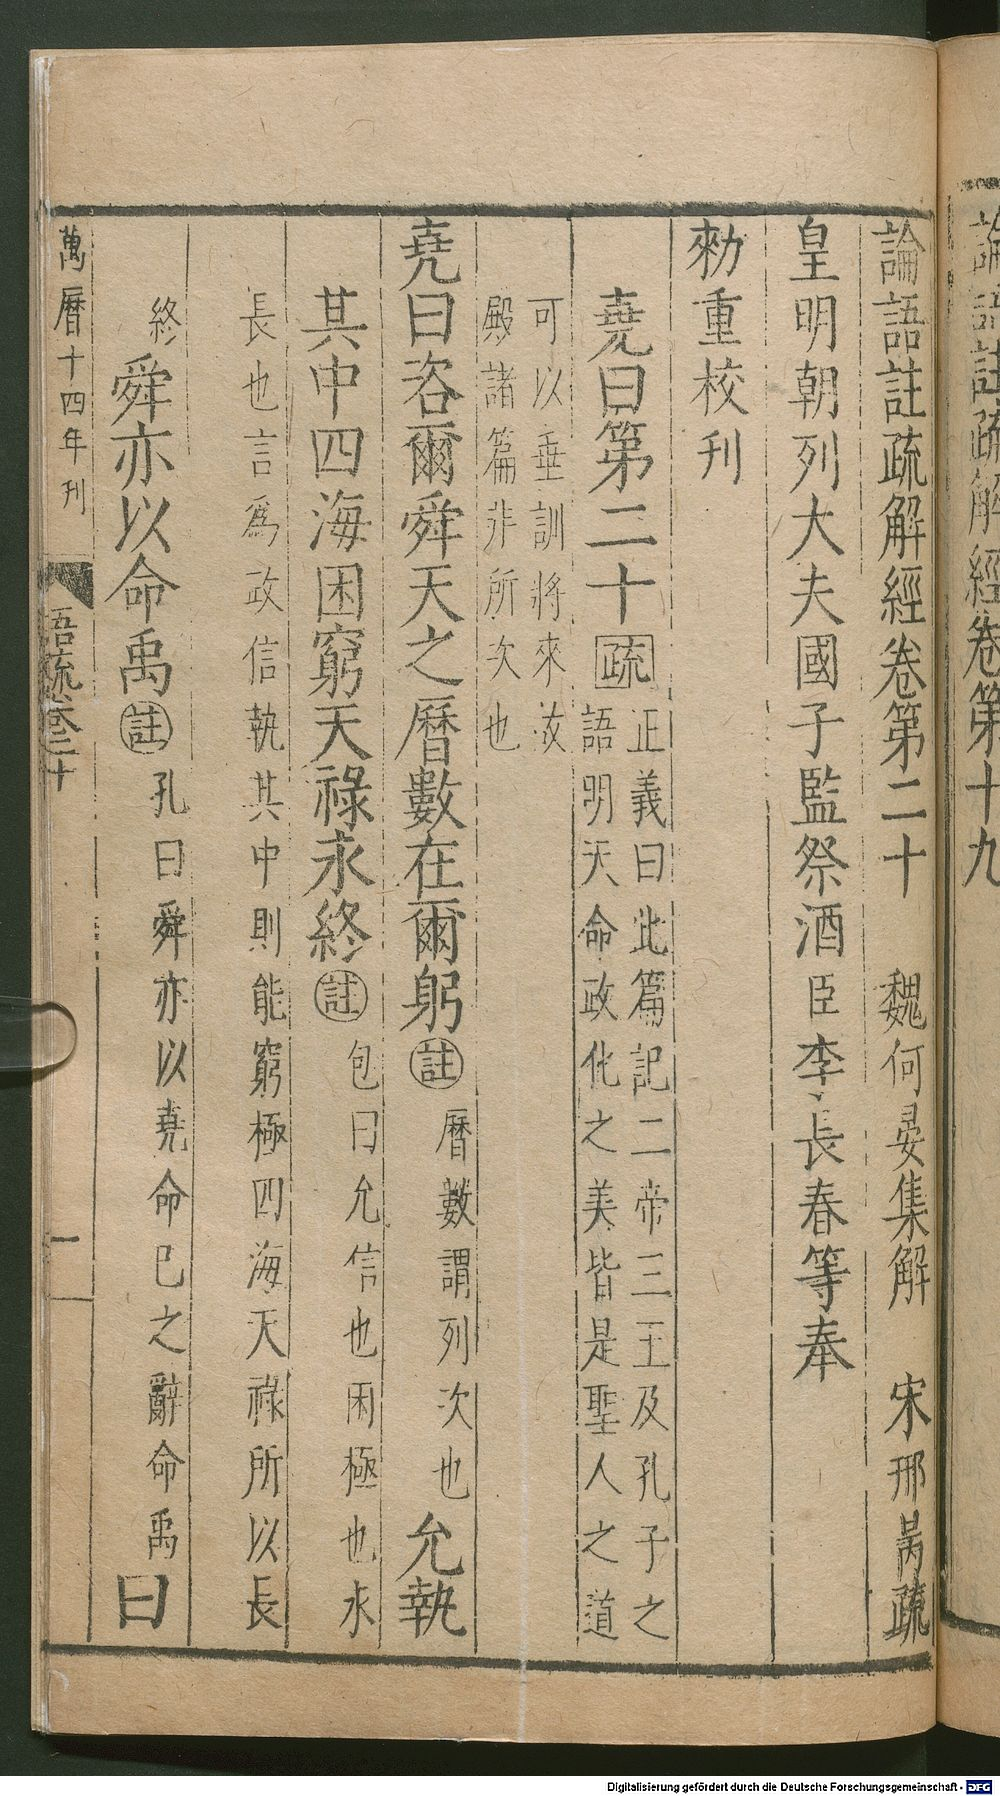 論語註疏解經卷第十九
論語註疏解經卷第二十　魏何晏集解　宋邢昺疏
皇明朝列大夫國子監祭酒臣李長春等奉
勑重校刊
堯曰第二十疏正義曰此篇記二帝三王及孔子之
語明天命政化之美皆是聖人之道
可以垂訓將來故
殿諸篇非所次也
堯曰咨爾舜天之曆數在爾躬註曆數謂列次也允執
其中四海困窮天祿永終註包曰允信也困極也永
長也言爲政信執其中則能窮極四海天祿所以長
終舜亦以命禹註孔曰舜亦以堯命已之辭命禹曰
萬曆十四年刊　語疏卷二十　一
Digitalisierung gefördert durch die Deutsche Forschungsgemeinschaft - DFG